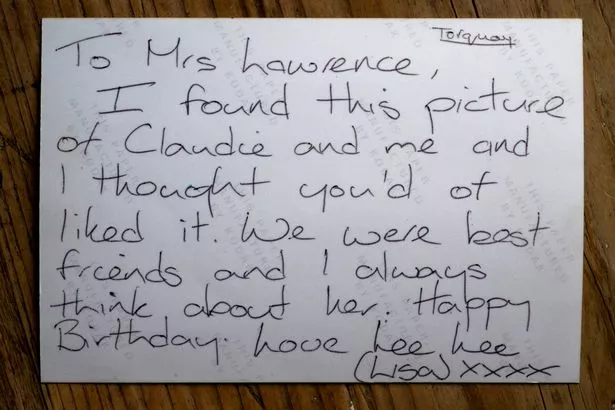 Torquay
To Mrs Lawrence,
I found this picture
of Claudie and me and
I thought you'd of
liked it. We were best
friends and I always
think about her. Happy
Birthday. Love Lee Lee
(Lisa) xxxx